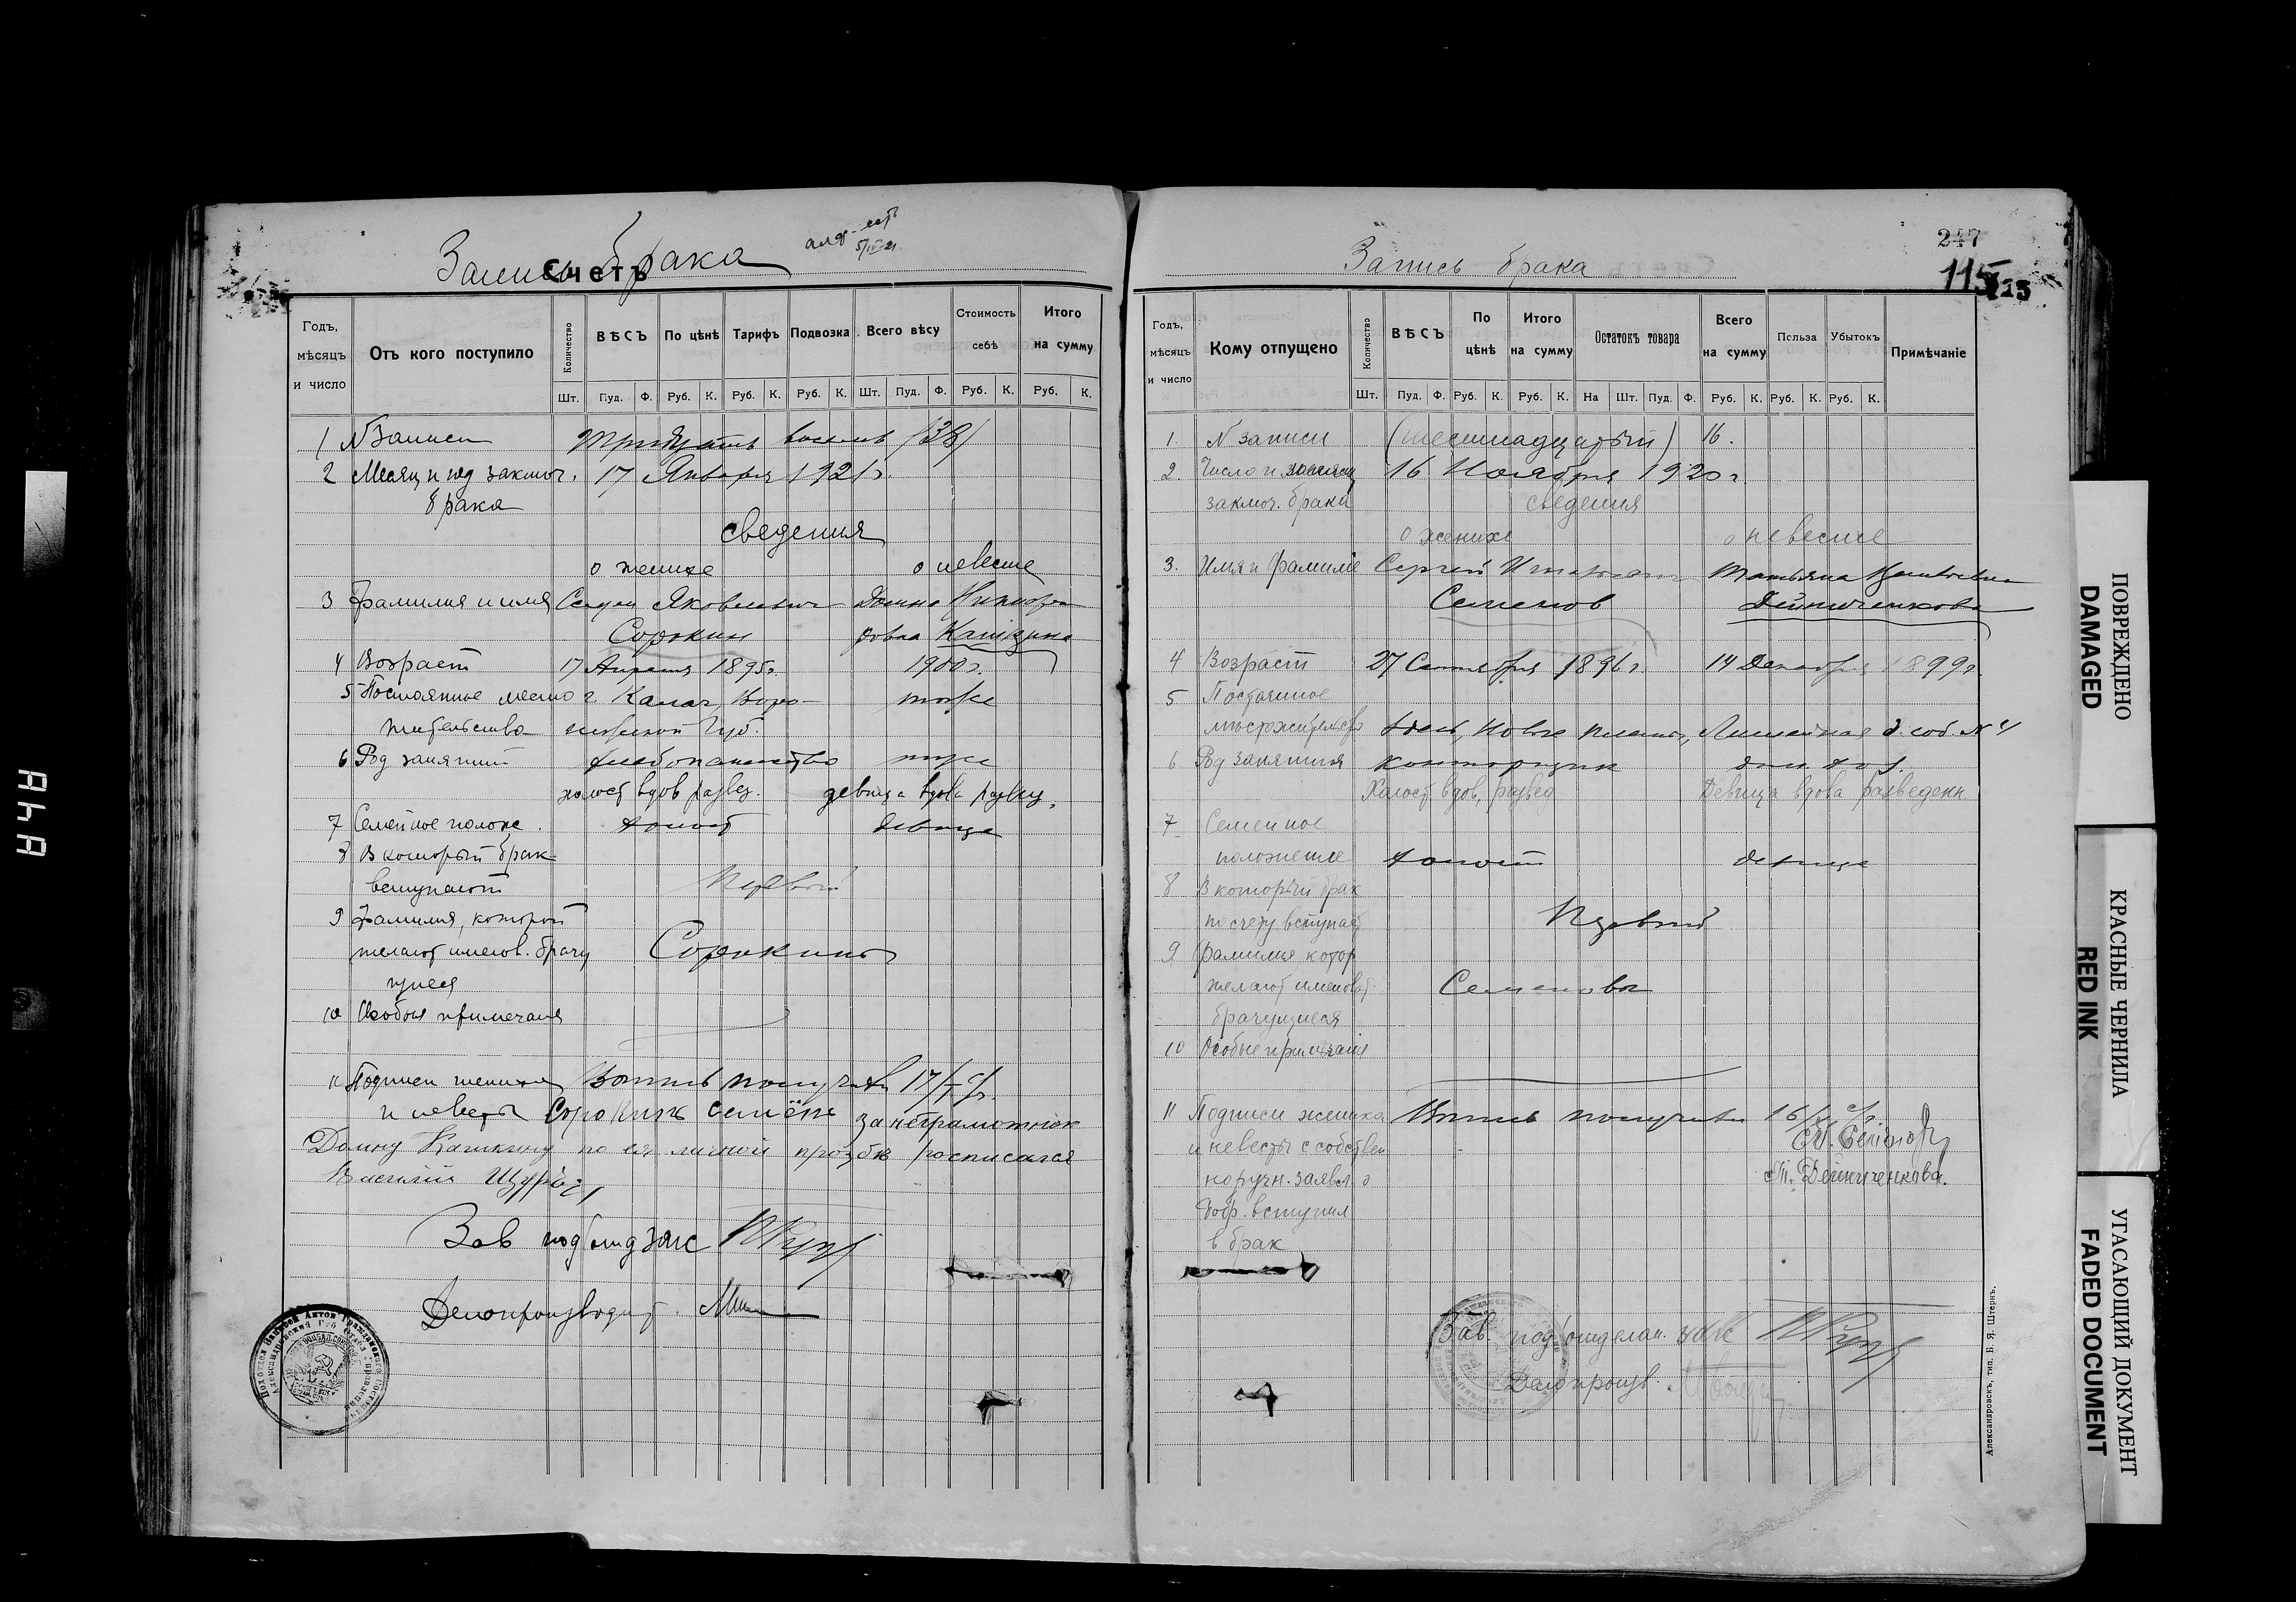 Запись брака
Счетъ
Годъ, мѣсяцъ и число
Отъ кого поступило
Количество
ВѢСЪ
По цѣнѣ
Тарифъ
Подвозка
Всего вѣсу
Стоимость себѣ
Итого на сумму
Шт. Пуд. Ф. Руб. К. Руб. К. Руб. К. Шт. Пуд. Ф. Руб. К. Руб. К.
1 N Записи Тридцать восемь /38/
2 Месяц и год заключ. 17 Января 1921 г.
брака
сведения
о женихе о невесте
3 Фамилия и имя Семен Яковлевич Домна Никифо
Сорокин ровна Кашкина
4 Возраст 17 Апреля 1895 г. 1900 г.
5 Постоянное место г. Калач, Воро- тоже
жительства нежской Губ.
6 Род занятий хлебопашество тоже
холост вдов развед. девица вдова развед.
7 Семейное полож. холост девица
8 В который брак
вступают Первый
9 Фамилия, которой
желают именов. брачу Сорокины
щиеся
10 Особыя примечания
11 Подписи жениха Выпись получили 17/I с/г.
и невесты Сорокинъ Семёнъ за неграмотною
Домну Кашкину по ея личной прозбѣ росписался
Василий
Зав подотд загс
Делопроизводит.
Подотдел Записей Актов Гражданского Состояния
247
Запись брака
115 115
Годъ, мѣсяцъ и число
Кому отпущено
Количество
ВѢСЪ
По цѣнѣ
Итого на сумму
Остатокъ товара
Всего на сумму
Польза
Убытокъ
Примѣчаніе
Шт. Пуд. Ф. Руб. К. Руб. К. На Шт. Пуд. Ф. Руб. К. Руб. К. Руб. К.
1. N записи (шестнадцатый) 16.
2. Число и месяц 16 Ноября 1920 г.
заключ. брака сведения
о женихе о невесте
3. Имя и фамилие Сергей Татьяна
Семенов Дейниченкова
4 Возраст 27 Сентября 1896 г. 14 Декабря 1899 г.
5 Постоянное
местожительство Новые д. соб. N 4
6 Род занятия конторщик дом. хоз.
Холост вдов, развед Девица вдова разведенн
7 Семейное
положение холост девица
8 В который брак
по счету вступают Первый
9 Фамилия котор
желают именоват. Семенова
брачущиеся
10 Особые примечание
11 Подписи жениха Выпись получили 16/XI с/г.
и невесты с собствен С. Семенов
норучн. заявл. о Т. Дейниченкова.
добр. вступил
в брак
Зав. подотделом загс
Делопроизв.
Александровскъ, тип. Б. Я. Штернъ.
ПОВРЕЖДЕНО
DAMAGED
КРАСНЫЕ ЧЕРНИЛА
RED INK
УГАСАЮЩИЙ ДОКУМЕНТ
FADED DOCUMENT